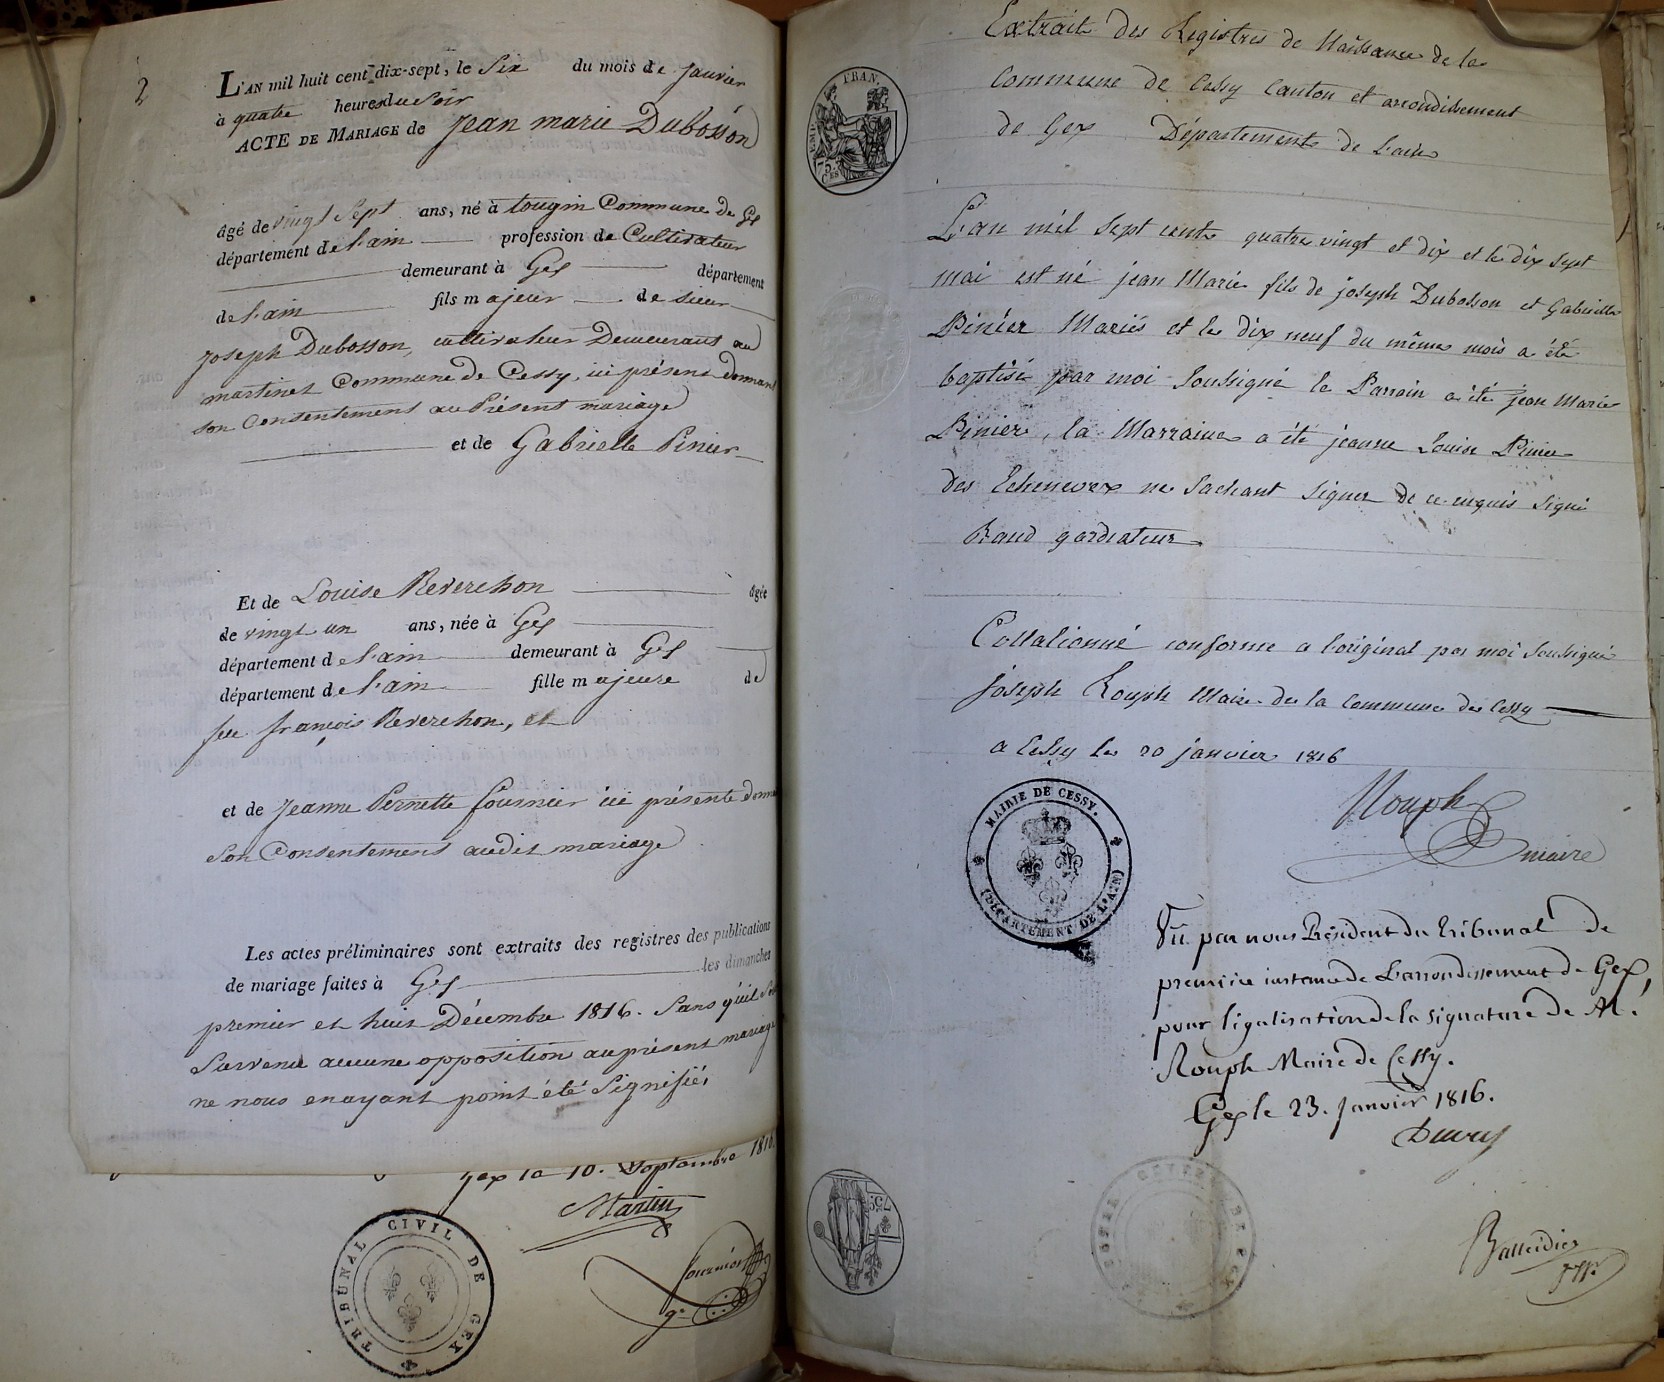 2
L'AN mil huit cent dix-sept, le Six du mois de janvier
à quatre heures du Soir
ACTE DE MARIAGE de Jean marie Dubosson
âgé de vingt Sept ans, né à tougin Commune de Gex
département de l'ain profession de Cultivateur
demeurant à Gex département
de l'ain fils majeur de sieur
joseph Dubosson, cultivateur Demeurant au
martinet Commune de Cessy, ici présent donnant
son Consentement au Présent mariage
et de Gabrielle Pinier
Et de Louise Reverchon âgée
de vingt un ans, née à Gex
département de l'ain demeurant à Gex
département de l'ain fille majeure de
feu françois Reverchon, et
et de Jeanne Pernette fournier ici présente donne
Son Consentement audit mariage
Les actes préliminaires sont extraits des registres des publications
de mariage faites à Gex les dimanches
premier et huit Décembre 1816. Sans qu'il Soit
Survenu aucune opposition au présent mariage
ne nous en ayant point été Signifié,
Gex le 10. Septembre 1816.
Martin
TRIBUNAL CIVIL DE GEX
fournier
Extrait des Registres de Naissance de la
Commune de Cessy Canton et arrondissement
de Gex Département de L'ain
FRAN.
L'an mil sept cent quatre vingt et dix et le dix sept
mai est né jean Marie fils de joseph Dubosson et Gabrielle
Pinier Mariés et le dix neuf du même mois a été
baptisé par moi Soussigné le Parrain a été jean Marie
Pinier, la Marraine a été jeanne Louise Pinier
des Echenevex ne Sachant signer de ce enquis signé
Raud gardiateur
Collationné conforme a l'original par moi Soussigné
joseph Rouph Maire de la Commune de Cessy
a Cessy le 20 janvier 1816
Rouph
maire
MAIRIE DE CESSY.
(DÉPARTEMENT DE L'AIN)
Vu par nous Président du Tribunal de
première instance de L'arrondissement de Gex,
pour légalisation de la signature de M.
Rouph Maire de Cessy.
Gex le 23. Janvier 1816.